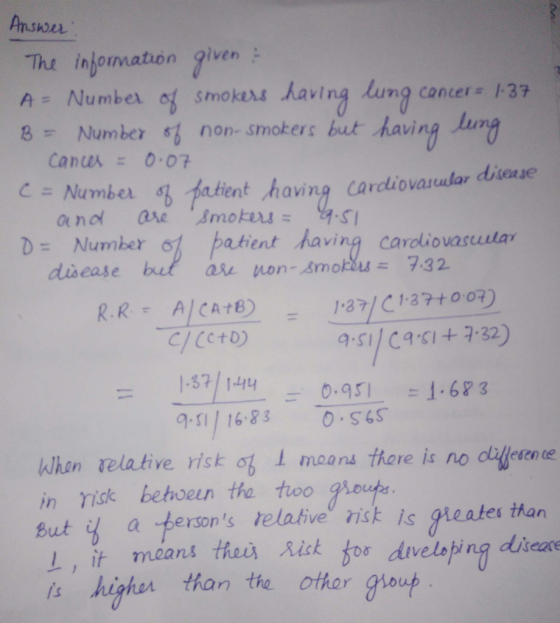 Answer:
The information given :-
A = Number of smokers having lung cancer = 1.37
B = Number of non-smokers but having lung
cancer = 0.07
C = Number of patient having cardiovascular disease
and are smokers = 9.51
D = Number of patient having cardiovascular
disease but are non-smokers = 7.32
R.R. = A/(A+B) / C/(C+D) = 1.37/(1.37+0.07) / 9.51/(9.51+7.32)
= 1.37/1.44 / 9.51/16.83 = 0.951 / 0.565 = 1.683
When relative risk of 1 means there is no difference
in risk between the two groups.
But if a person's relative risk is greater than
1, it means their risk for developing disease
is higher than the other group.